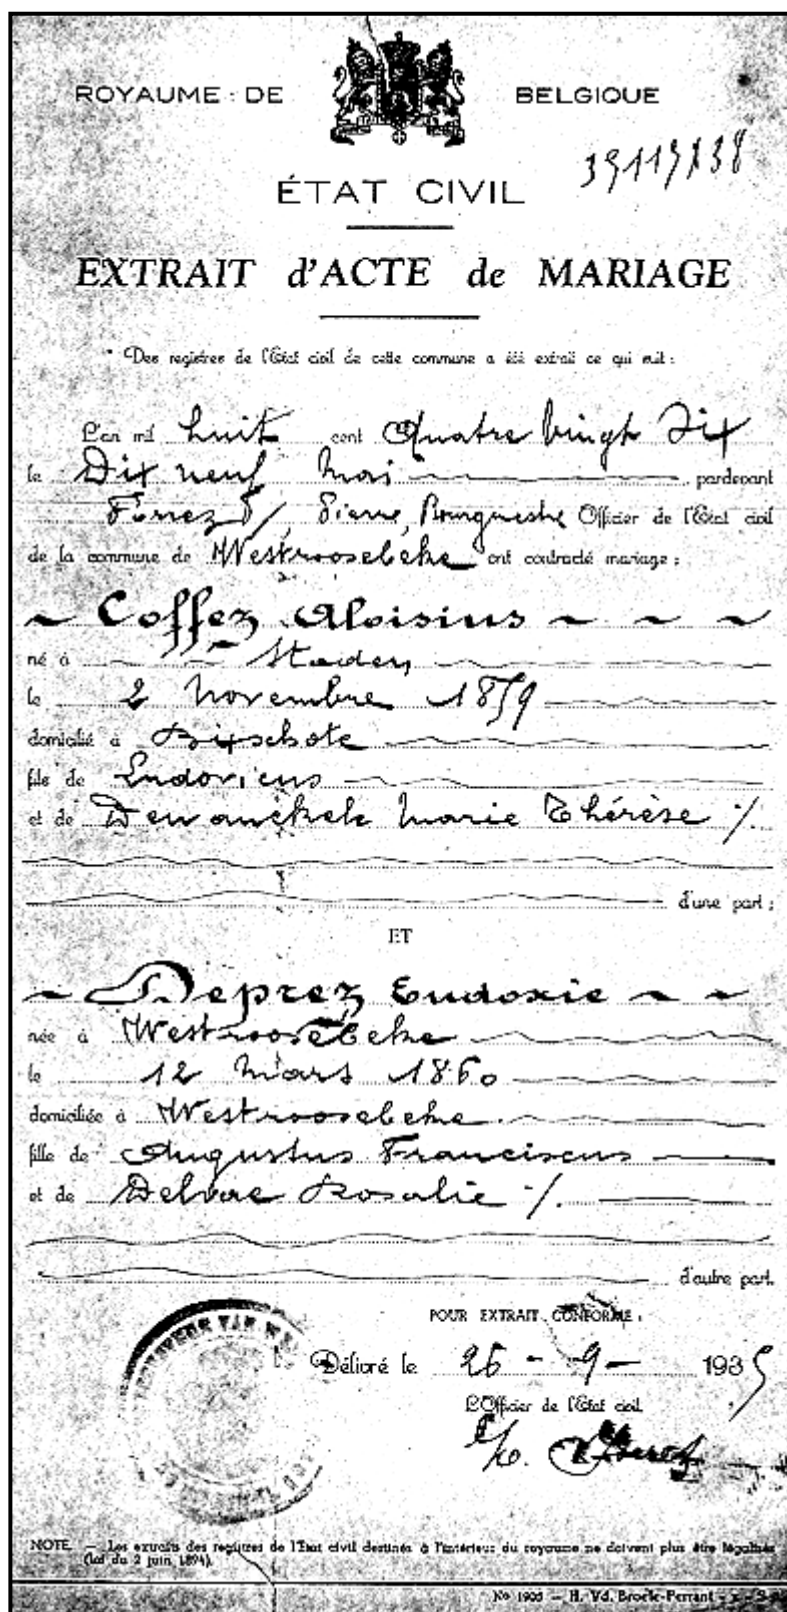 ROYAUME DE BELGIQUE
39119838
ÉTAT CIVIL
EXTRAIT d'ACTE de MARIAGE
Des registres de l'État civil de cette commune a été extrait ce qui suit :
L'an mil huit cent Quatre vingt Dix
le Dix neuf Mai pardevant
Pierre, Officier de l'État civil
de la commune de Westroosebeke ont contracté mariage :
~ Coffez Aloisius ~ ~ ~
né à Staden
le 2 Novembre 1859
domicilié à Bixschote
fils de Ludovicus
et de Dewanckele Marie Thérèse ./.
d'une part ;
ET
~ Deprez Eudoxie ~ ~
née à Westroosebeke
le 12 Mars 1860
domiciliée à Westroosebeke
fille de Augustus Franciscus
et de Delvae Rosalie ./.
d'autre part.
POUR EXTRAIT CONFORME :
Délivré le 26 - 9 - 1935
L'Officier de l'État civil,
NOTE. — Les extraits des registres de l'État civil destinés à l'intérieur du royaume ne doivent plus être légalisés
(loi du 2 juin 1894).
No 1905 — H. Vd. Broele-Perrant